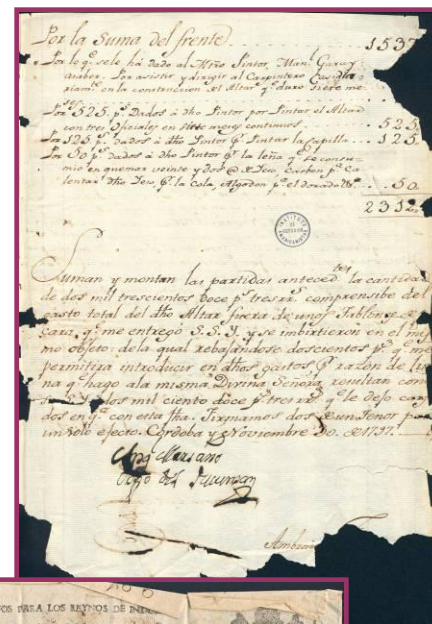 Por la Suma del frente . . . 1537
Por lo q.e se le há dado al Mtro Pintor, Man.l
por asistir y dirigir al Carpintero
en la construccion del Altar q.e duró siete me
ses
Por 525 p.s Dados à dho Pintor por Pintar el Altar
con tres Oficiales en siete meses continuos . . . 525
Por 125 p.s dados à dho Pintor p.r Pintar la Capilla . . . 125
Por 50 p.s dados à dho Pintor p.r la leña q.e se consu
mio en quemar veinte y dos @ de Yeso, Carbon p.a Ca
lentar dho Yeso, p.r la Cola, Algodon p.a el dorado &.a . . . 50
2312
INSTITUTO
Suman y montan las partidas anteced.tes la cantidad
de dos mil trescientos doce p.s tres r.s comprensibo del
gasto total del dho Altar fuera de unos Tablones de
q.e me entregó S.S.Y. y se imbirtieron en el mis
mo objeto: de la qual rebajandose doscientos p.s q.e me
permitirá introducir en dhos gastos, p.r razon de lim
na q.e hago à la misma Divina Señora, resultan con
dos mil ciento doce p.s tres r.s q.e le dejo
dos en q.e con esta fha. Firmamos dos de un Tenor para
un solo efecto. Cordoba y Noviembre 30. de 1797.
Ang.l Mariano
Obpo del Tucuman
Ambrosio
PARA LOS REYNOS DE